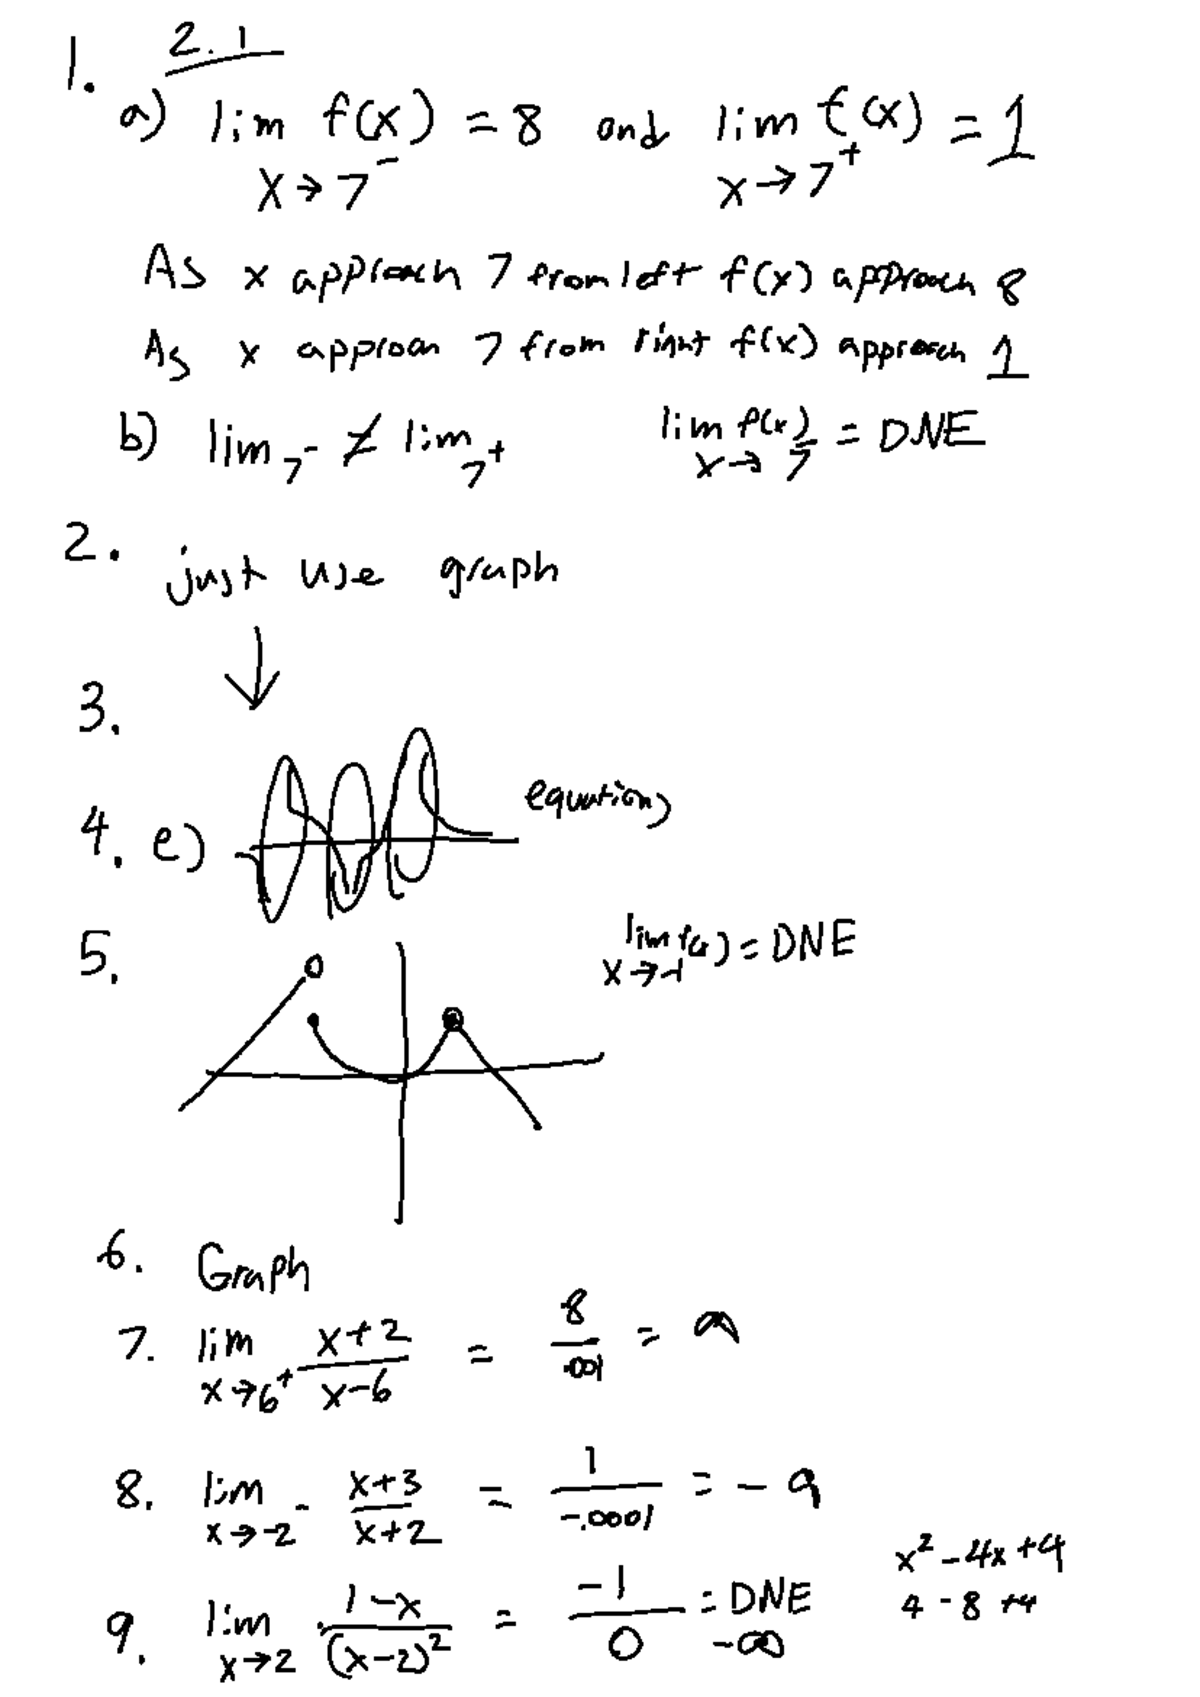 1. 2.1
a) lim f(x) = 8 and lim f(x) = 1
x→7⁻ x→7⁺
As x approach 7 from left f(x) approach 8
As x approan 7 from right f(x) approach 1
b) lim₇⁻ ≠ lim₇⁺ lim f(x) = DNE
x→7
2. just use graph
3.
4. e) equations
5. lim f(x) = DNE
x→-1
6. Graph
7. lim x+2 / x-6 = 8 / .001 = ∞
x→6⁺
8. lim x+3 / x+2 = 1 / -.0001 = -
x→-2⁻
x² - 4x + 4
9. lim 1-x / (x-2)² = -1 / 0 = DNE 4 - 8 + 4
x→2 -∞